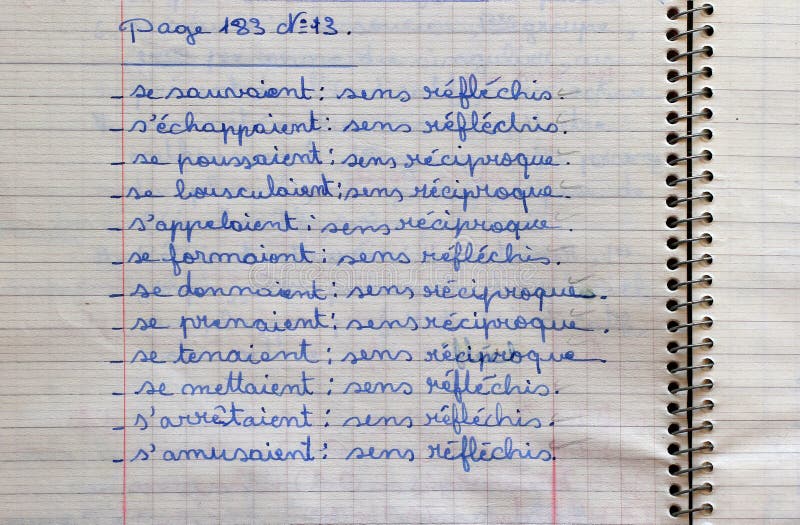 Page 183 N° 13.
- se sauvaient : sens réfléchis.
- s'échappaient : sens réfléchis.
- se poussaient : sens réciproque.
- se bousculaient : sens réciproque.
- s'appelaient : sens réciproque.
- se formaient : sens réfléchis.
- se donnaient : sens réciproque.
- se prenaient : sens réciproque.
- se tenaient : sens réciproque
- se mettaient : sens réfléchis.
- s'arrêtaient : sens réfléchis.
- s'amusaient : sens réfléchis.